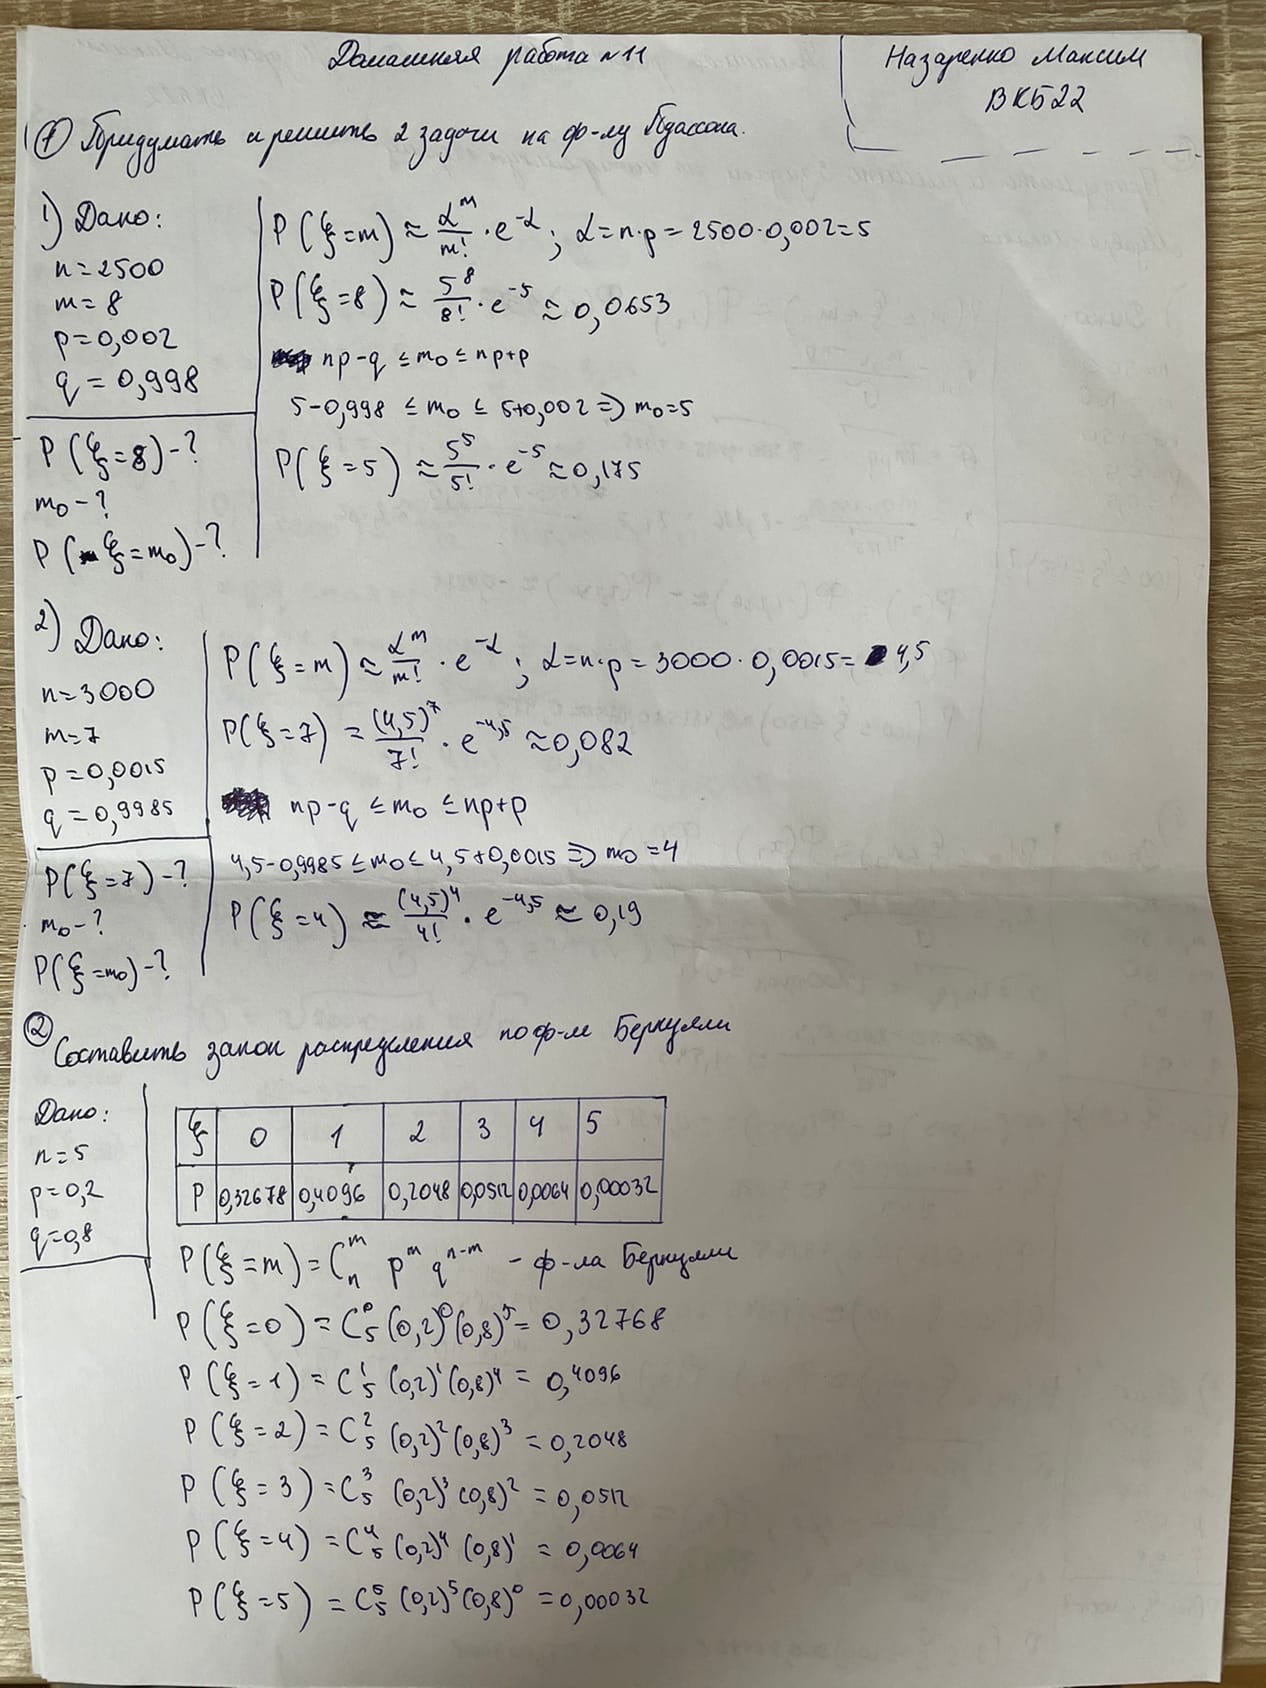 Домашняя работа №11
Назаренко Максим
ВКБ22
① Придумать и решить 2 задачи на ф-лу Пуассона.
1) Дано:
n=2500
m=8
p=0,002
q=0,998
P(ξ=8)-?
m₀-?
P(ξ=m₀)-?
P(ξ=m) ≈ α^m/m! · e^-α ; α=n·p=2500·0,002=5
P(ξ=8) ≈ 5^8/8! · e^-5 ≈ 0,0653
np-q ≤ m₀ ≤ np+p
5-0,998 ≤ m₀ ≤ 5+0,002 ⇒ m₀=5
P(ξ=5) ≈ 5^5/5! · e^-5 ≈ 0,175
2) Дано:
n=3000
m=7
p=0,0015
q=0,9985
P(ξ=7)-?
m₀-?
P(ξ=m₀)-?
P(ξ=m) ≈ α^m/m! · e^-α ; α=n·p=3000·0,0015=4,5
P(ξ=7) = (4,5)^7/7! · e^-4,5 ≈ 0,082
np-q ≤ m₀ ≤ np+p
4,5-0,9985 ≤ m₀ ≤ 4,5+0,0015 ⇒ m₀=4
P(ξ=4) ≈ (4,5)^4/4! · e^-4,5 ≈ 0,19
② Составить закон распределения по ф-ле Бернулли
Дано:
n=5
p=0,2
q=0,8
ξ 0 1 2 3 4 5
P 0,32678 0,4096 0,2048 0,0512 0,0064 0,00032
P(ξ=m)=C_n^m p^m q^n-m - ф-ла Бернулли
P(ξ=0)=C_5^0 (0,2)^0 (0,8)^5=0,32768
P(ξ=1)=C_5^1 (0,2)^1 (0,8)^4=0,4096
P(ξ=2)=C_5^2 (0,2)^2 (0,8)^3=0,2048
P(ξ=3)=C_5^3 (0,2)^3 (0,8)^2=0,0512
P(ξ=4)=C_5^4 (0,2)^4 (0,8)^1=0,0064
P(ξ=5)=C_5^5 (0,2)^5 (0,8)^0=0,00032